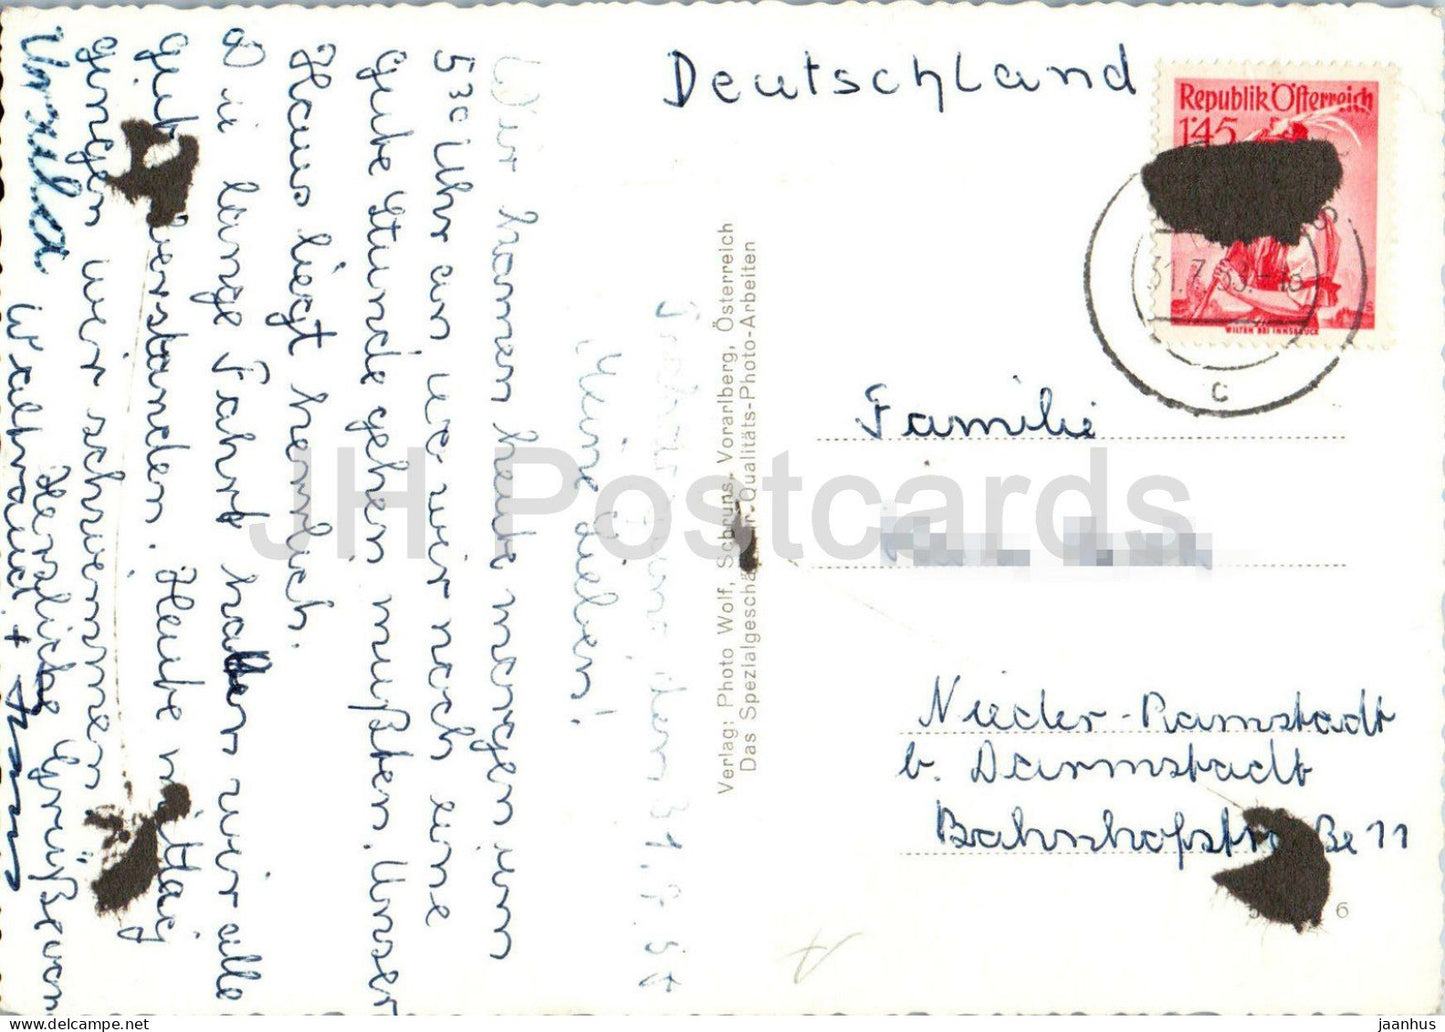 Deutschland
Republik Österreich
1.45
WILTEN BEI INNSBRUCK
31.7.53.-18
c
Familie
Nieder-Ramstadt
b. Darmstadt
Bahnhofstraße 11
6
Verlag: Photo Wolf, Schruns, Vorarlberg, Österreich
Das Spezialgeschäft für Qualitäts-Photo-Arbeiten
den 31.7.53
Meine Lieben!
Wir kamen heute morgen um
5 30 Uhr an wo wir noch eine
gute Stunde gehen mußten. Unser
Haus liegt herrlich.
Die lange Fahrt haben wir alle
gut überstanden. Heute mittag
gingen wir schwimmen
Herzliche Grüße von
Waltraud + Hans
Ursula
JH Postcards
jaanhus - www.delcampe.net